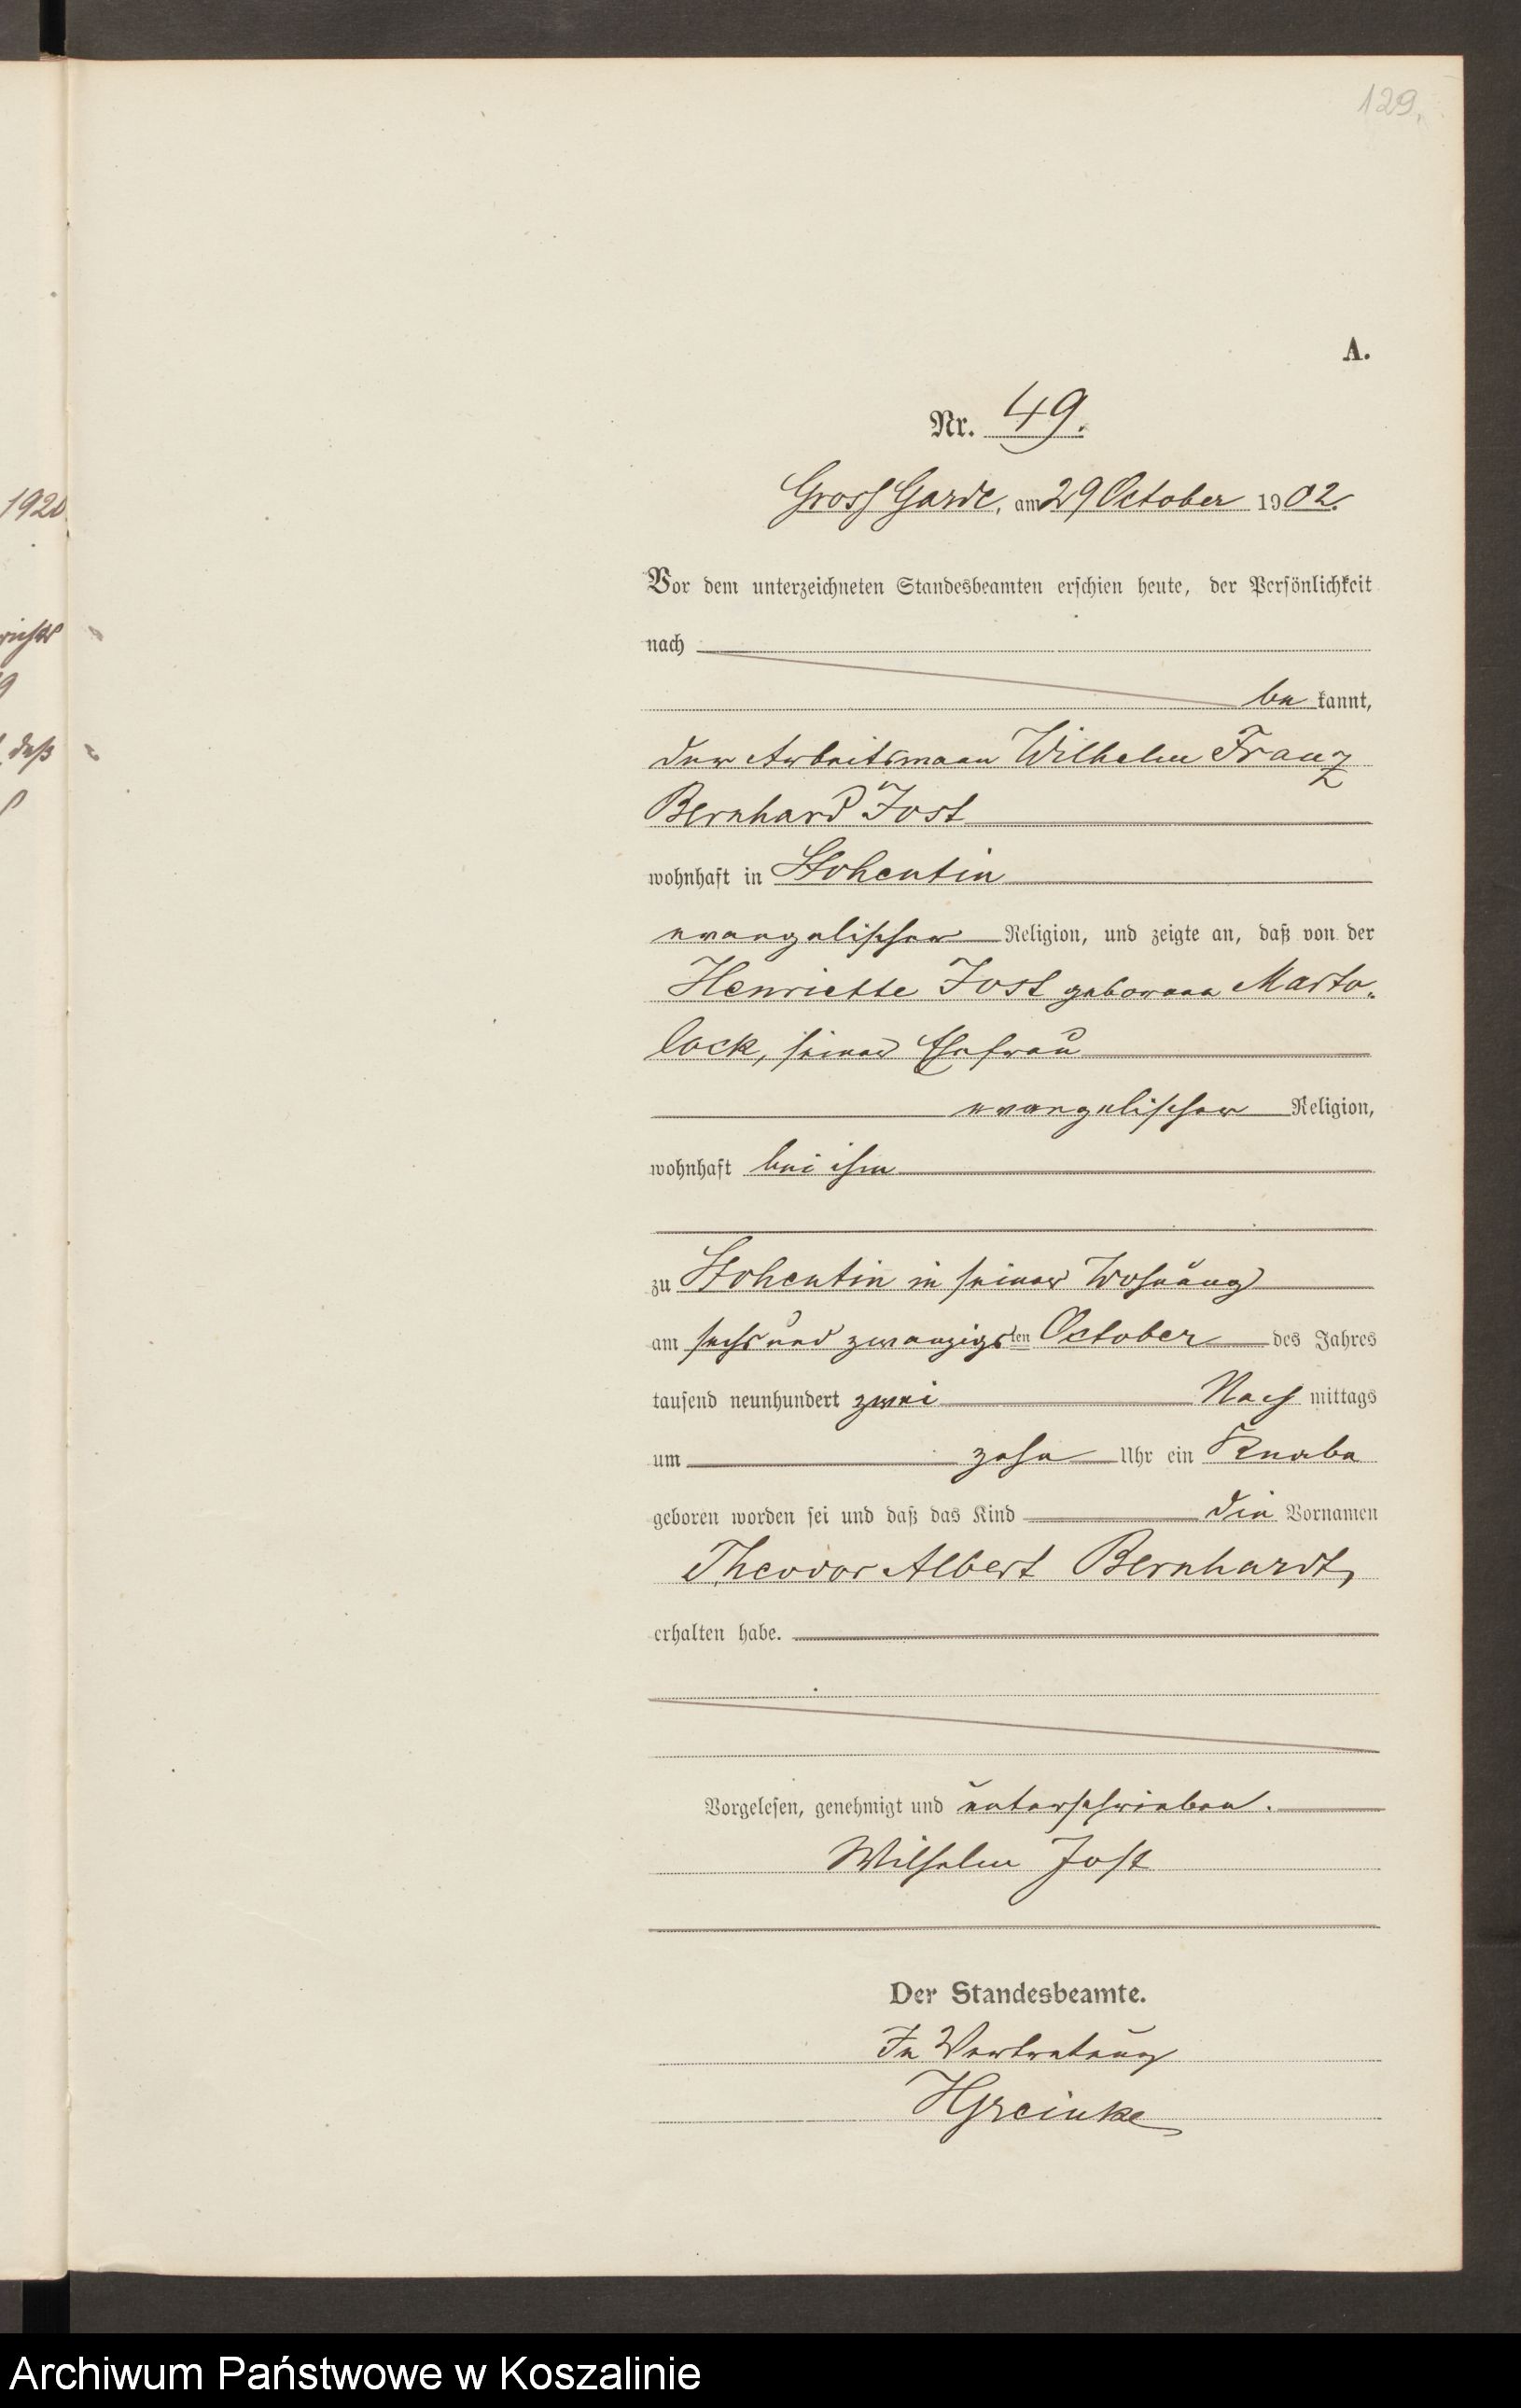 129.
A.
Nr. 49.
Gross Garde, am 29 October 1902.
Vor dem unterzeichneten Standesbeamten erschien heute, der Persönlichkeit
nach
be kannt,
der Arbeitsmann Wilhelm Franz
Bernhard Jost
wohnhaft in Stohentin
evangelischer Religion, und zeigte an, daß von der
Henriette Jost geborene Marto-
lock, seiner Ehefrau
evangelischer Religion,
wohnhaft bei ihm
zu Stohentin in seiner Wohnung
am sechs und zwanzigsten October des Jahres
tausend neunhundert zwei Nach mittags
um zehn Uhr ein Knabe
geboren worden sei und daß das Kind die Vornamen
Theodor Albert Bernhardt,
erhalten habe.
Vorgelesen, genehmigt und unterschrieben.
Wilhelm Jost
Der Standesbeamte.
In Vertretung
1920
daß
Archiwum Państwowe w Koszalinie